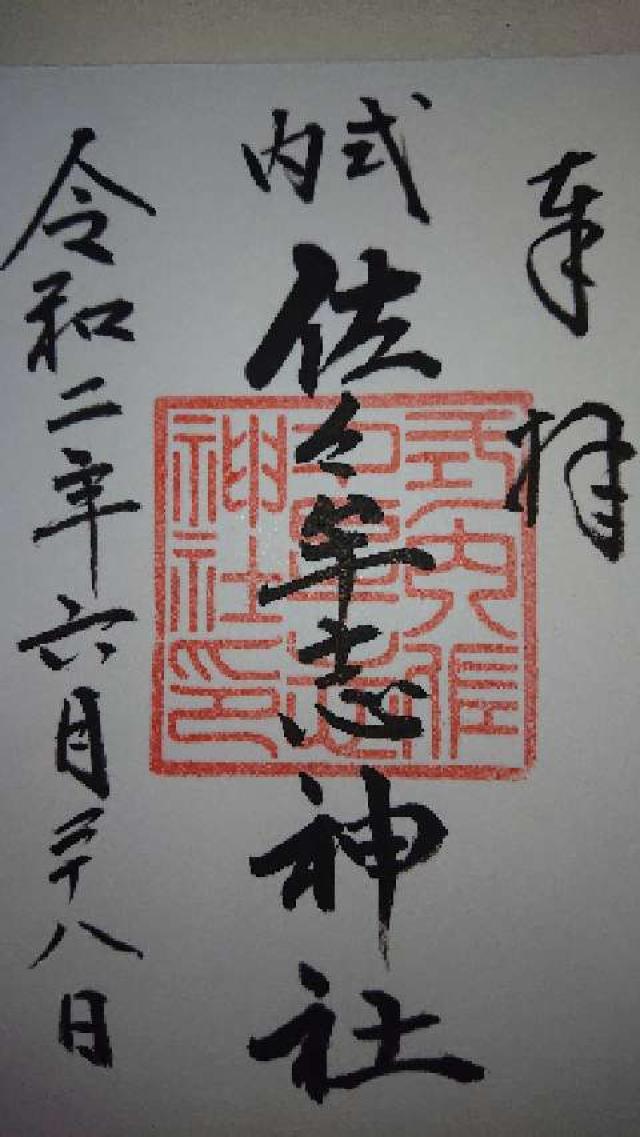 奉拝
式内
佐々牟志神社
令和二年六月二十八日
式内佐
々牟志
神社印